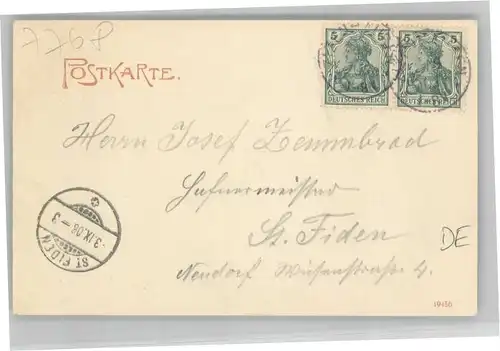 7768
POSTKARTE.
5 5
DEUTSCHES REICH
5 5
DEUTSCHES REICH
Herrn Josef Zemmbrod
Hafnermeister
St. Fiden
DE
Neudorf Wiesenstraße 4.
3.IX.08 – 3
ST. FIDEN
19450